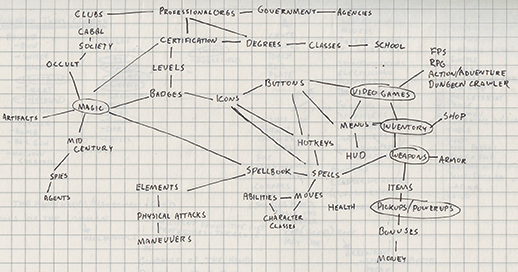 CLUBS
PROFESSIONAL ORGS
GOVERNMENT
AGENCIES
CABAL
SOCIETY
CERTIFICATION
DEGREES
CLASSES
SCHOOL
FPS
RPG
ACTION/ADVENTURE
DUNGEON CRAWLER
OCCULT
LEVELS
BADGES
ICONS
BUTTONS
VIDEO GAMES
MAGIC
ARTIFACTS
MENUS
INVENTORY
SHOP
MID
CENTURY
HOTKEYS
HUD
WEAPONS
ARMOR
SPIES
AGENTS
SPELLBOOK
SPELLS
ELEMENTS
ABILITIES
MOVES
ITEMS
PHYSICAL ATTACKS
CHARACTER
CLASSES
HEALTH
PICKUPS/POWERUPS
MANEUVERS
BONUSES
MONEY